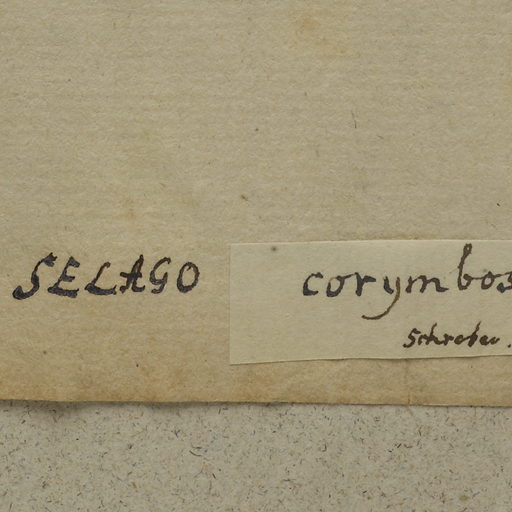 SELAGO corymbos
Schreber.